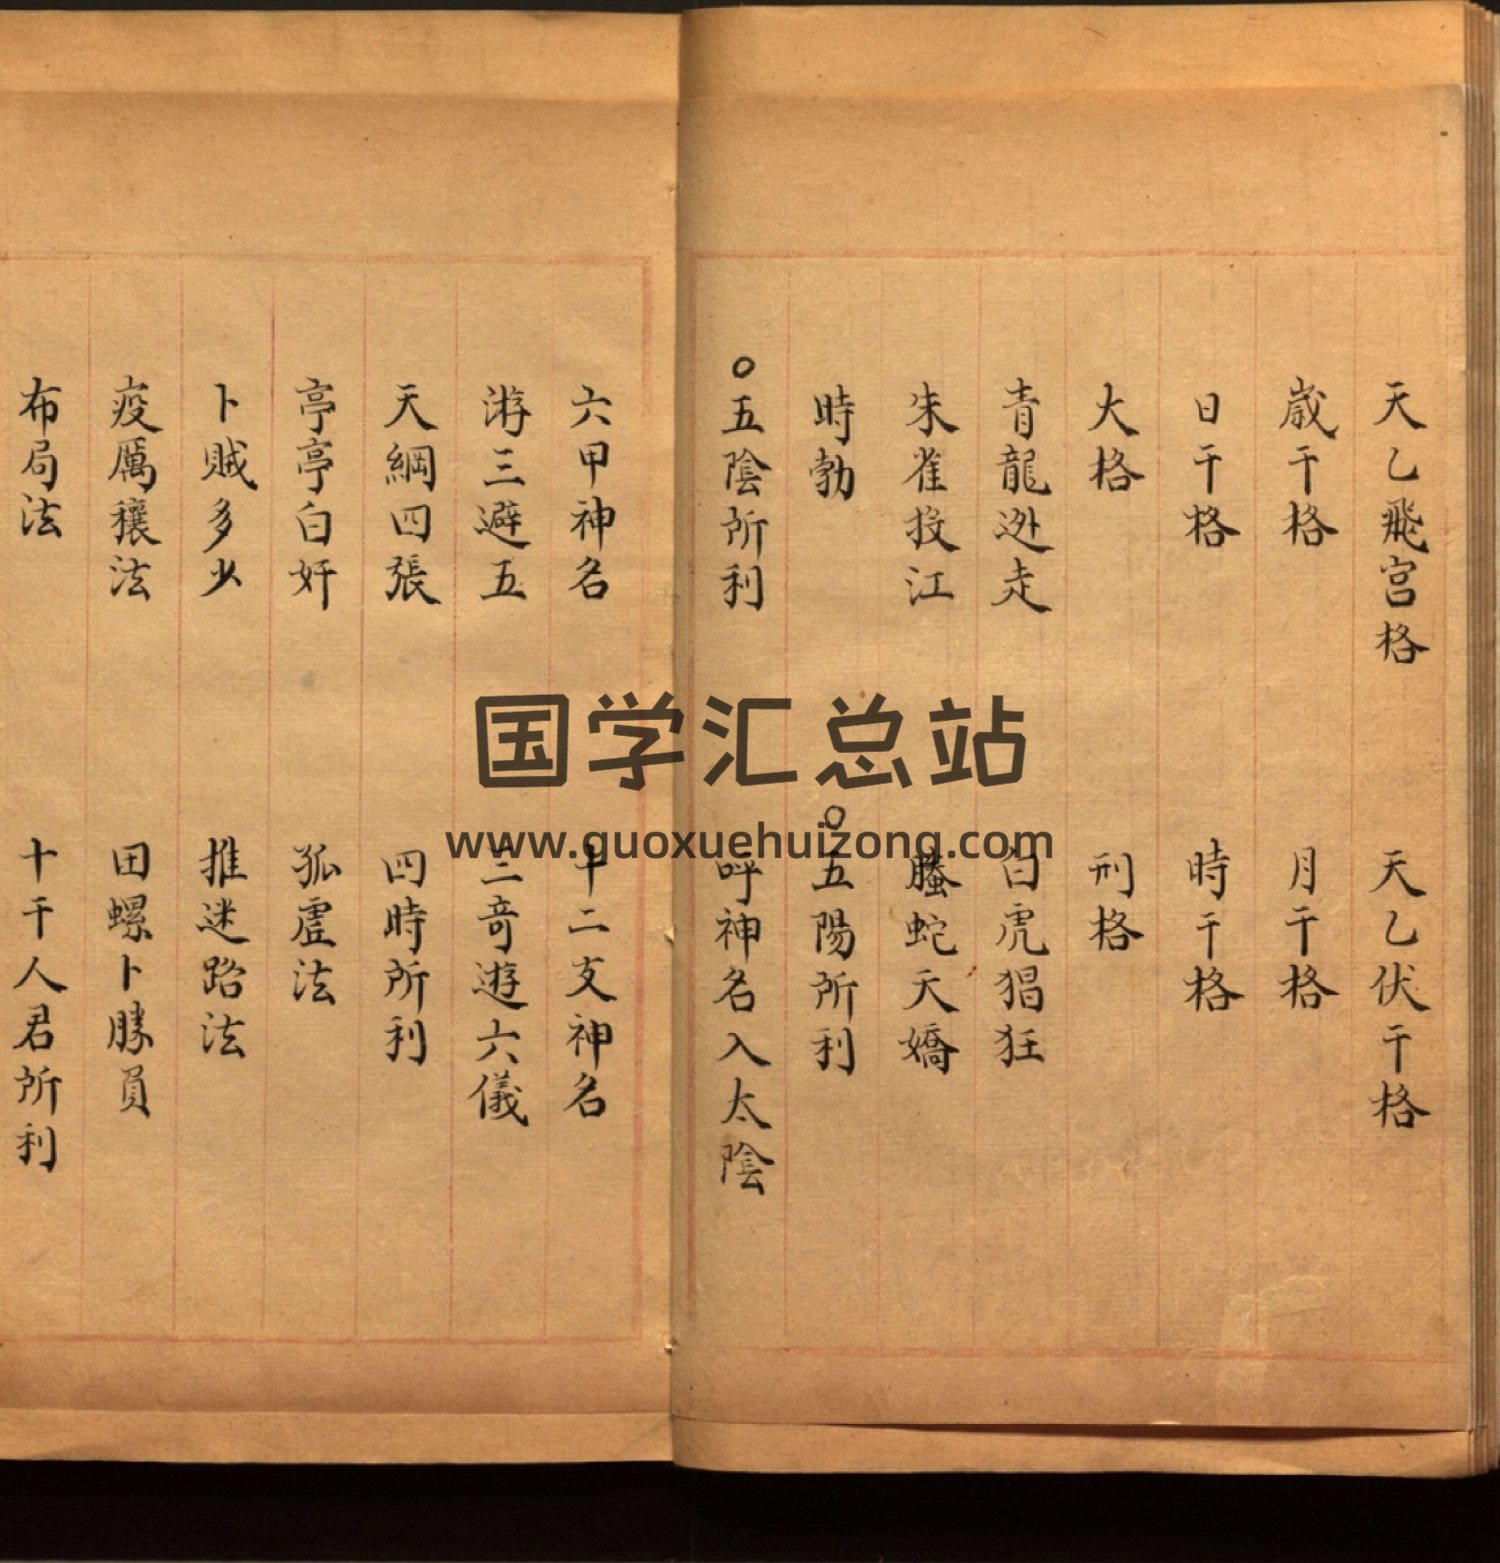 天乙飛宫格 天乙伏干格
歲干格 月干格
日干格 時干格
大格 刑格
青龍迯走 白虎猖狂
朱雀投江 螣蛇天嬌
時勃 ○五陽所利
○五陰所利 呼神名入太陰
六甲神名 十二支神名
游三避五 三竒遊六儀
天綱四張 四時所利
亭亭白奸 狐虛法
卜賊多少 推迷路法
疫厲穰法 田螺卜勝負
布局法 十干人君所利
国学汇总站
www.guoxuehuizong.com